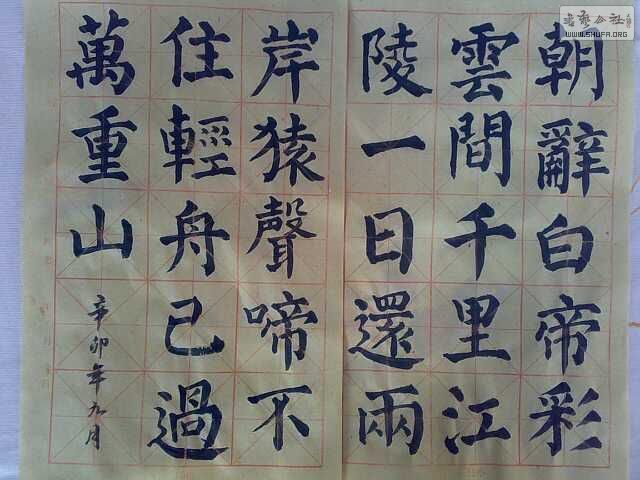 朝辭白帝彩
雲間千里江
陵一日還兩
岸猿聲啼不
住輕舟已過
萬重山
辛卯年九月
書藝公社
WWW.SHUFA.ORG